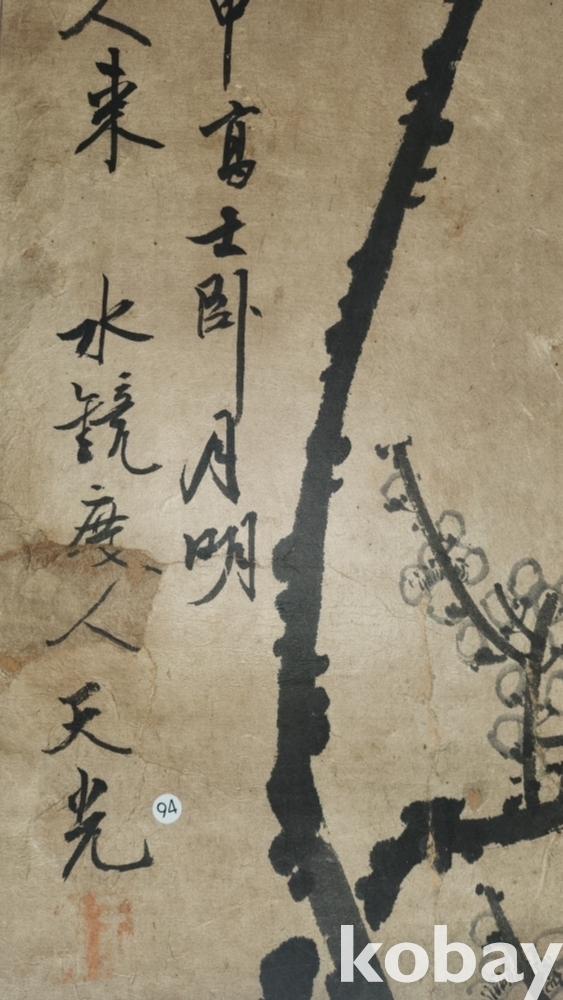 中高士臥月明
人來 水鏡度人 天光
94
kobay